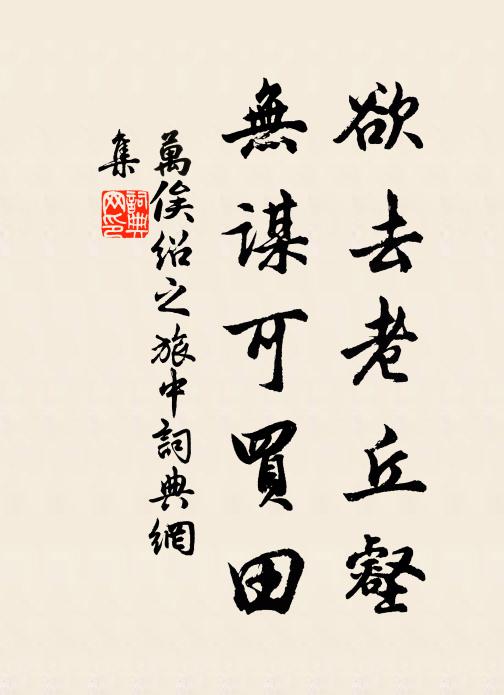 欲去老丘壑
無謀可買田
萬俟紹之旅中詞典網
集
詞典網印